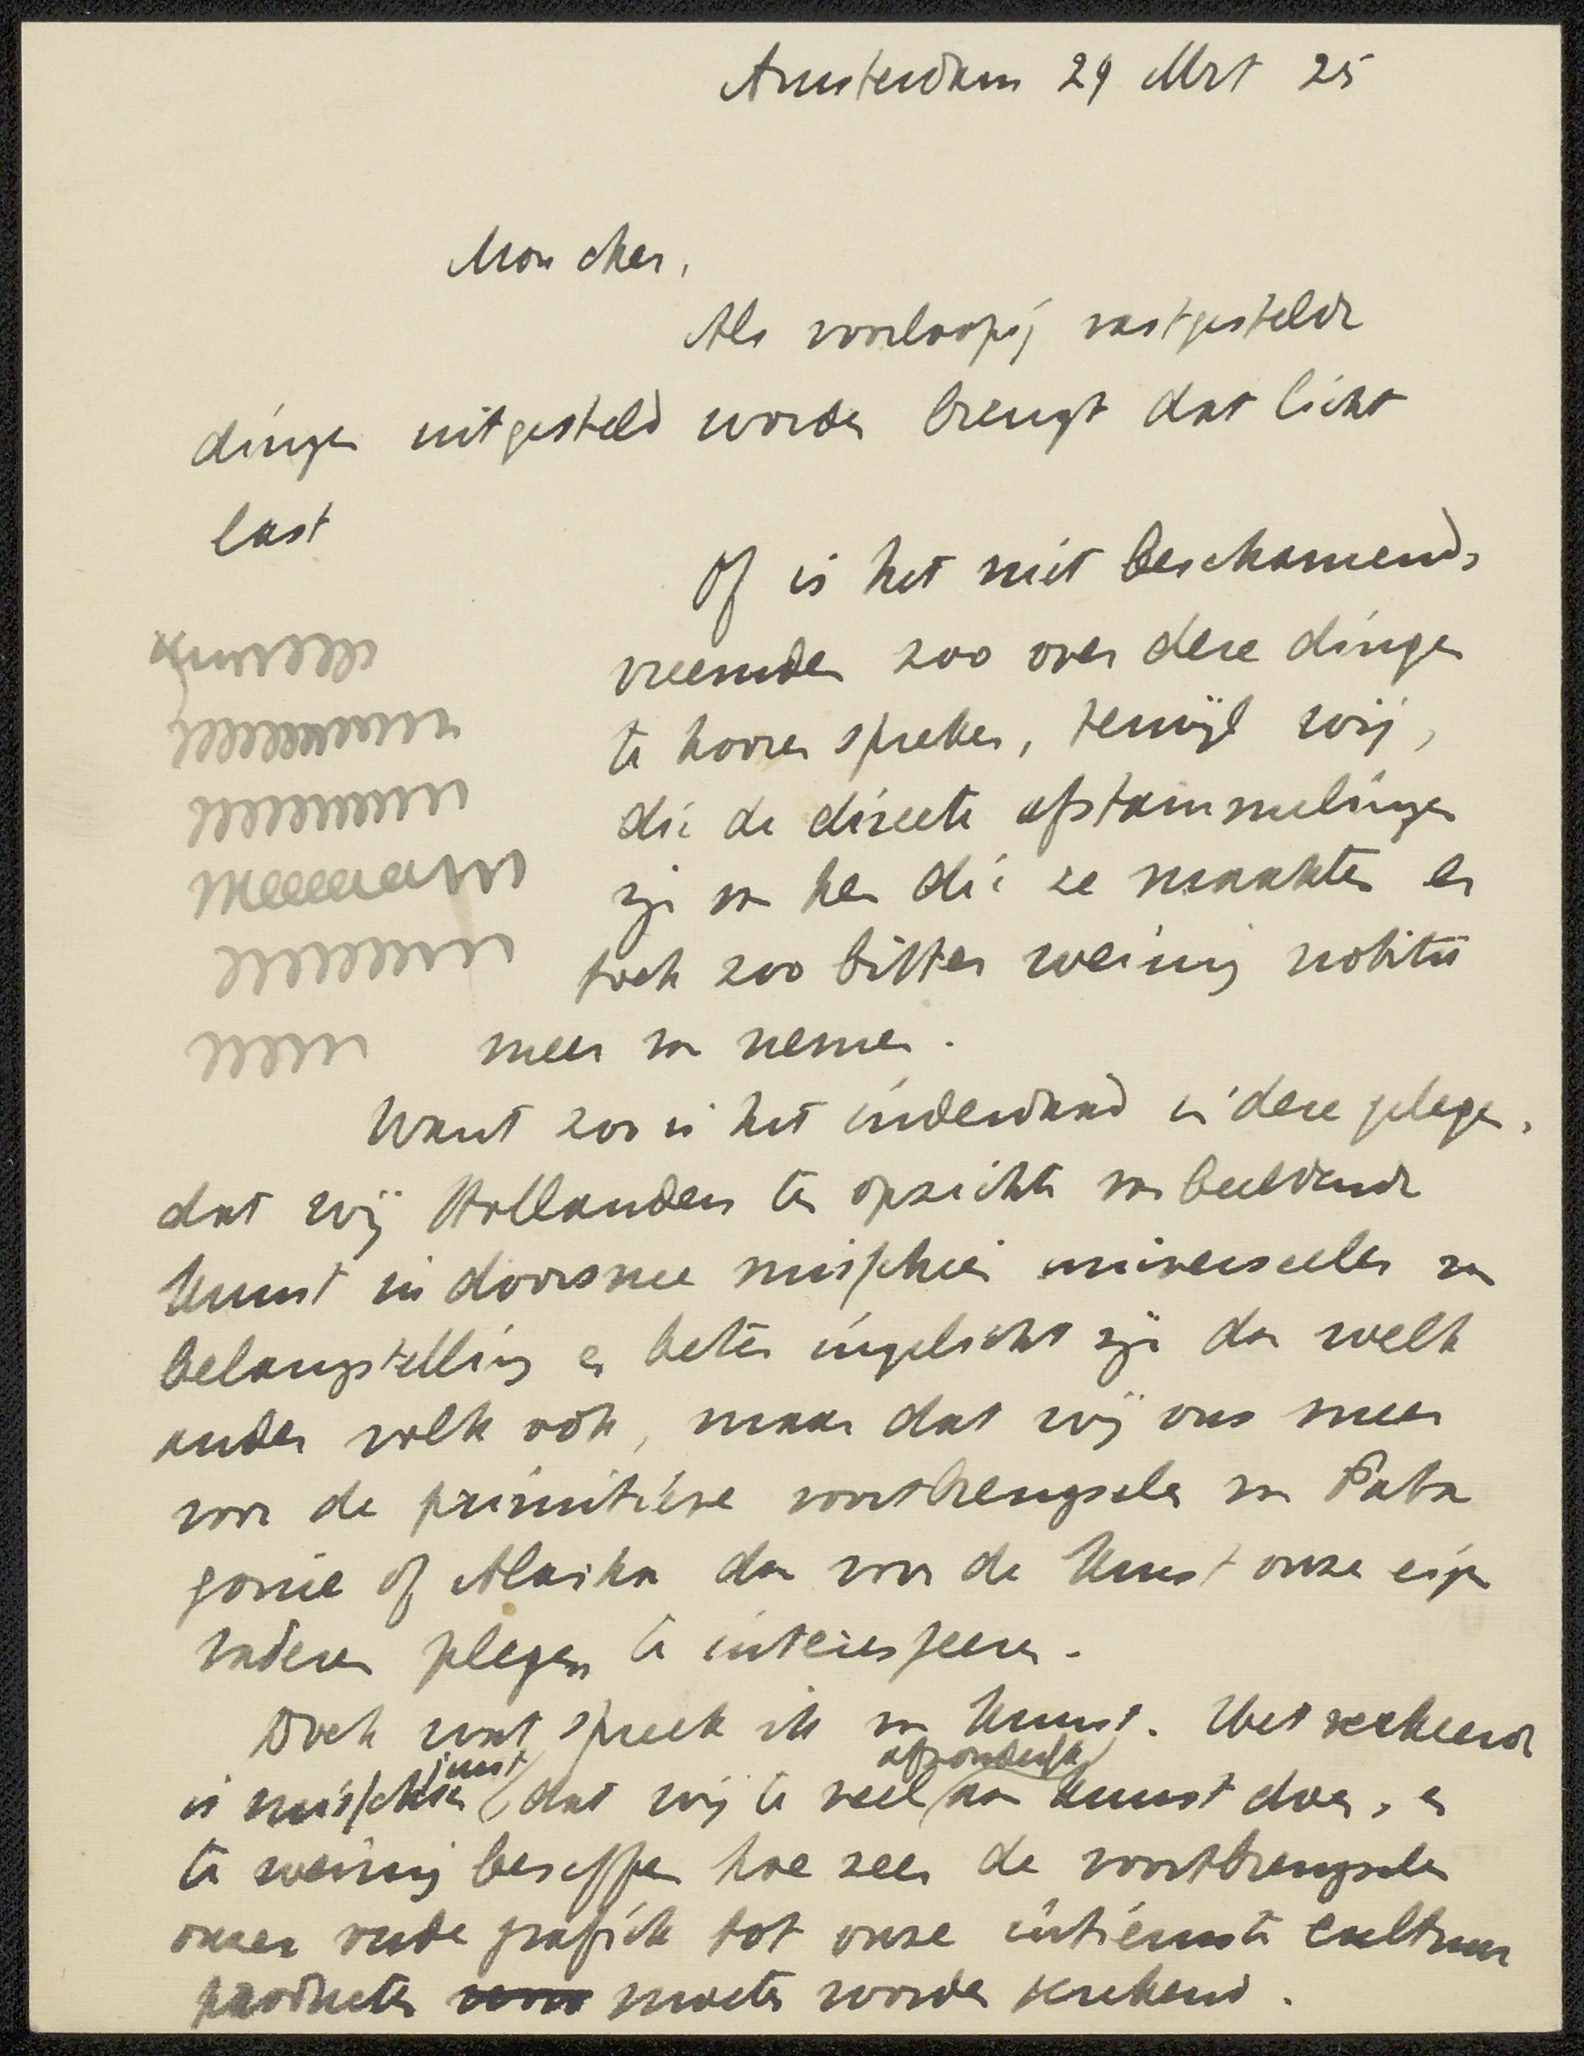 Amsterdam 29 Mrt 25
Mon cher,
Als voorloopig vastgestelde
dingen uitgesteld worden brengt dat licht
last
Of is het niet beschamend,
vreemden zoo over deze dingen
te hooren spreken, terwijl wij,
die de directe afstammelingen
zijn van hen die ze maakten er
toch zoo bitter weinig notitie
meer van nemen.
Want zoo is het inderdaad in deze gelegen,
dat wij Hollanders ten opzichte van beeldende
kunst in doorsnee misschien universeeler van
belangstelling en beter ingelicht zijn dan welk
ander volk ook, maar dat wij ons meer
voor de primitieve voortbrengselen van Pata
gonie of Alaska dan voor de kunst onzer eigen
vaderen plegen te interesseeren.
Doch wat spreek ik van kunst. Het verkeerde
is misschien juist dat wij te veel afzonderlijk aan kunst doen, en
te weinig beseffen hoe zeer de voortbrengselen
onzer oude grafiek tot onze intiemste cultuur
producten moeten worden gerekend.